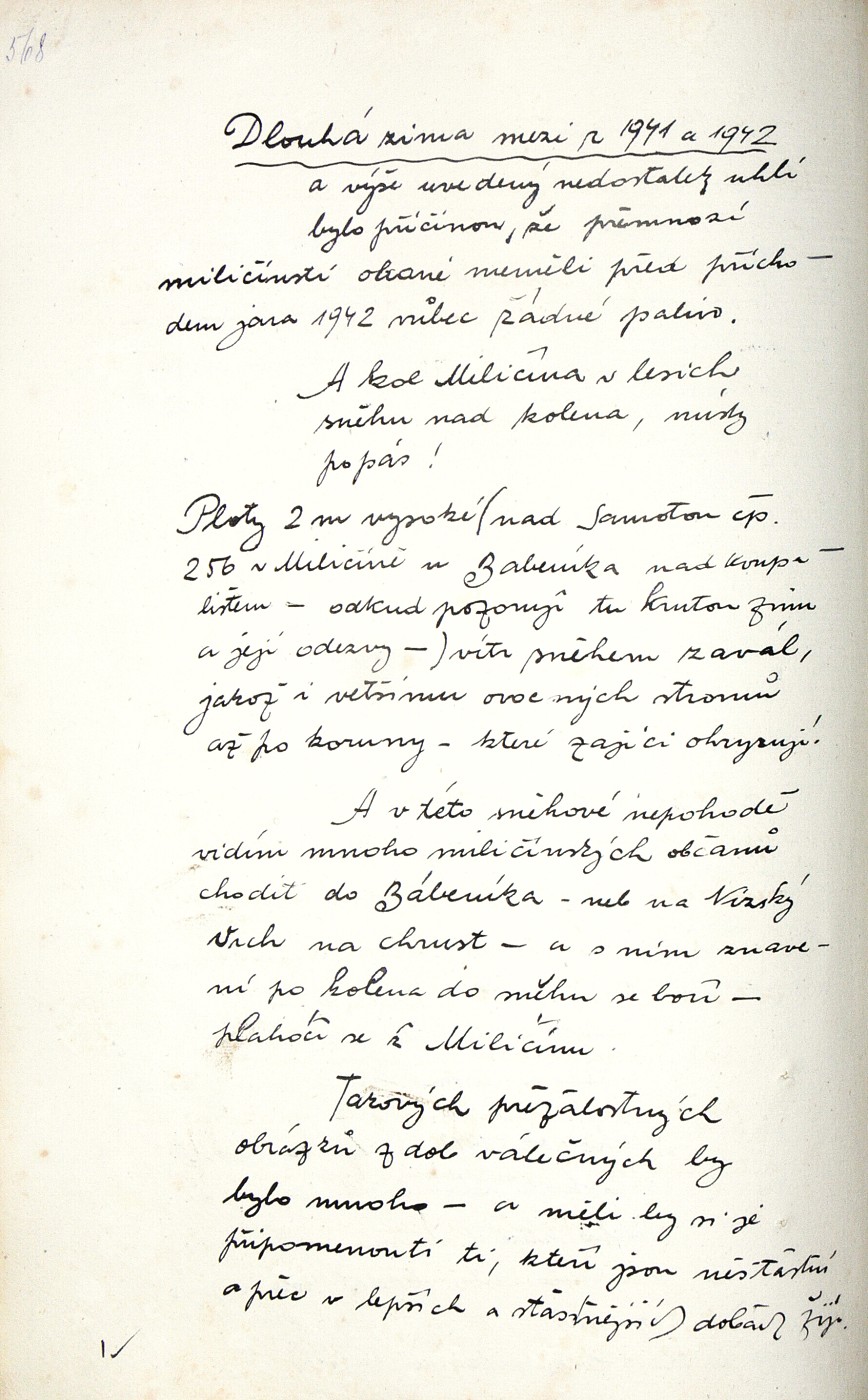 568
Dlouhá zima mezi r 1941 a 1942
a výše uvedený nedostatek uhlí
bylo příčinou, že přemnozí
miličínští občané neměli před přícho-
dem jara 1942 vůbec žádné palivo.
A kol Miličína v lesích
sněhu nad kolena, místy
po pás!
Ploty 2 m vysoké (nad Samotou čp.
256 v Miličíně u Babeníka nad koupa-
lištěm - odkud pozoruji tu krutou zimu
a její odezvy -) vítr sněhem zavál,
jakož i většinu ovocných stromů
až po koruny - které zajíci ohryzují!
A v této sněhové nepohodě
vidím mnoho miličínských občanů
chodit do Bábeníka - neb na Nízký
Vrch na chrust - a s ním znave-
ní po kolena do sněhu se boří -
plahočí se k Miličínu.
Takových přežalostných
obrázků z dob válečných by
bylo mnoho - a měli by si je
připomenouti ti, kteří jsou nešťastni
a přec v lepších a šťastnějších dobách žijí.